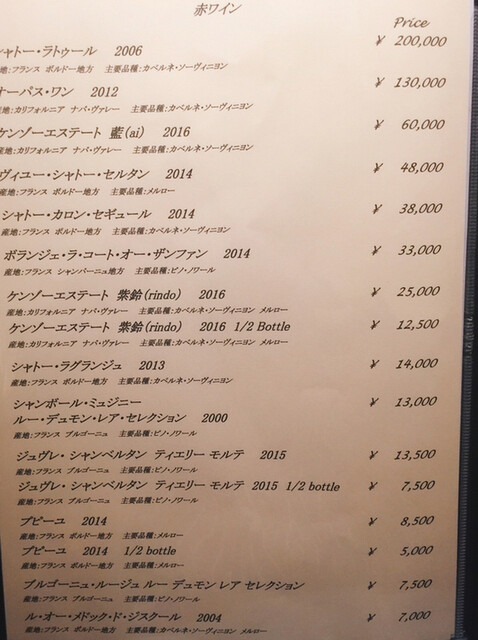 赤ワイン
Price
シャトー・ラトゥール 2006 ¥ 200,000
産地:フランス ボルドー地方 主要品種:カベルネ・ソーヴィニヨン
オーパス・ワン 2012 ¥ 130,000
産地:カリフォルニア ナパ・ヴァレー 主要品種:カベルネ・ソーヴィニヨン
ケンゾーエステート 藍(ai) 2016 ¥ 60,000
産地:カリフォルニア ナパ・ヴァレー 主要品種:カベルネ・ソーヴィニヨン
ヴィユー・シャトー・セルタン 2014 ¥ 48,000
産地:フランス ボルドー地方 主要品種:メルロー
シャトー・カロン・セギュール 2014 ¥ 38,000
産地:フランス ボルドー地方 主要品種:カベルネ・ソーヴィニヨン
ボランジェ・ラ・コート・オー・ザンファン 2014 ¥ 33,000
産地:フランス シャンパーニュ地方 主要品種:ピノ・ノワール
ケンゾーエステート 紫鈴(rindo) 2016 ¥ 25,000
産地:カリフォルニア ナパ・ヴァレー 主要品種:カベルネ・ソーヴィニヨン メルロー
ケンゾーエステート 紫鈴(rindo) 2016 1/2 Bottle ¥ 12,500
産地:カリフォルニア ナパ・ヴァレー 主要品種:カベルネ・ソーヴィニヨン メルロー
シャトー・ラグランジュ 2013 ¥ 14,000
産地:フランス ボルドー地方 主要品種:カベルネ・ソーヴィニヨン
シャンボール・ミュジニー
ルー・デュモン・レア・セレクション 2000 ¥ 13,000
産地:フランス ブルゴーニュ 主要品種:ピノ・ノワール
ジュヴレ・シャンベルタン ティエリー モルテ 2015 ¥ 13,500
産地:フランス ブルゴーニュ 主要品種:ピノ・ノワール
ジュヴレ・シャンベルタン ティエリー モルテ 2015 1/2 bottle ¥ 7,500
産地:フランス ブルゴーニュ 主要品種:ピノ・ノワール
プピーユ 2014 ¥ 8,500
産地:フランス ボルドー地方 主要品種:メルロー
プピーユ 2014 1/2 bottle ¥ 5,000
産地:フランス ボルドー地方 主要品種:メルロー
ブルゴーニュ・ルージュ ルー デュモン レア セレクション ¥ 7,500
産地:フランス ブルゴーニュ 主要品種:ピノ・ノワール
ル・オー・メドック・ド・ジスクール 2004 ¥ 7,000
産地:フランス ボルドー地方 主要品種:カベルネ・ソーヴィニヨン メルロー